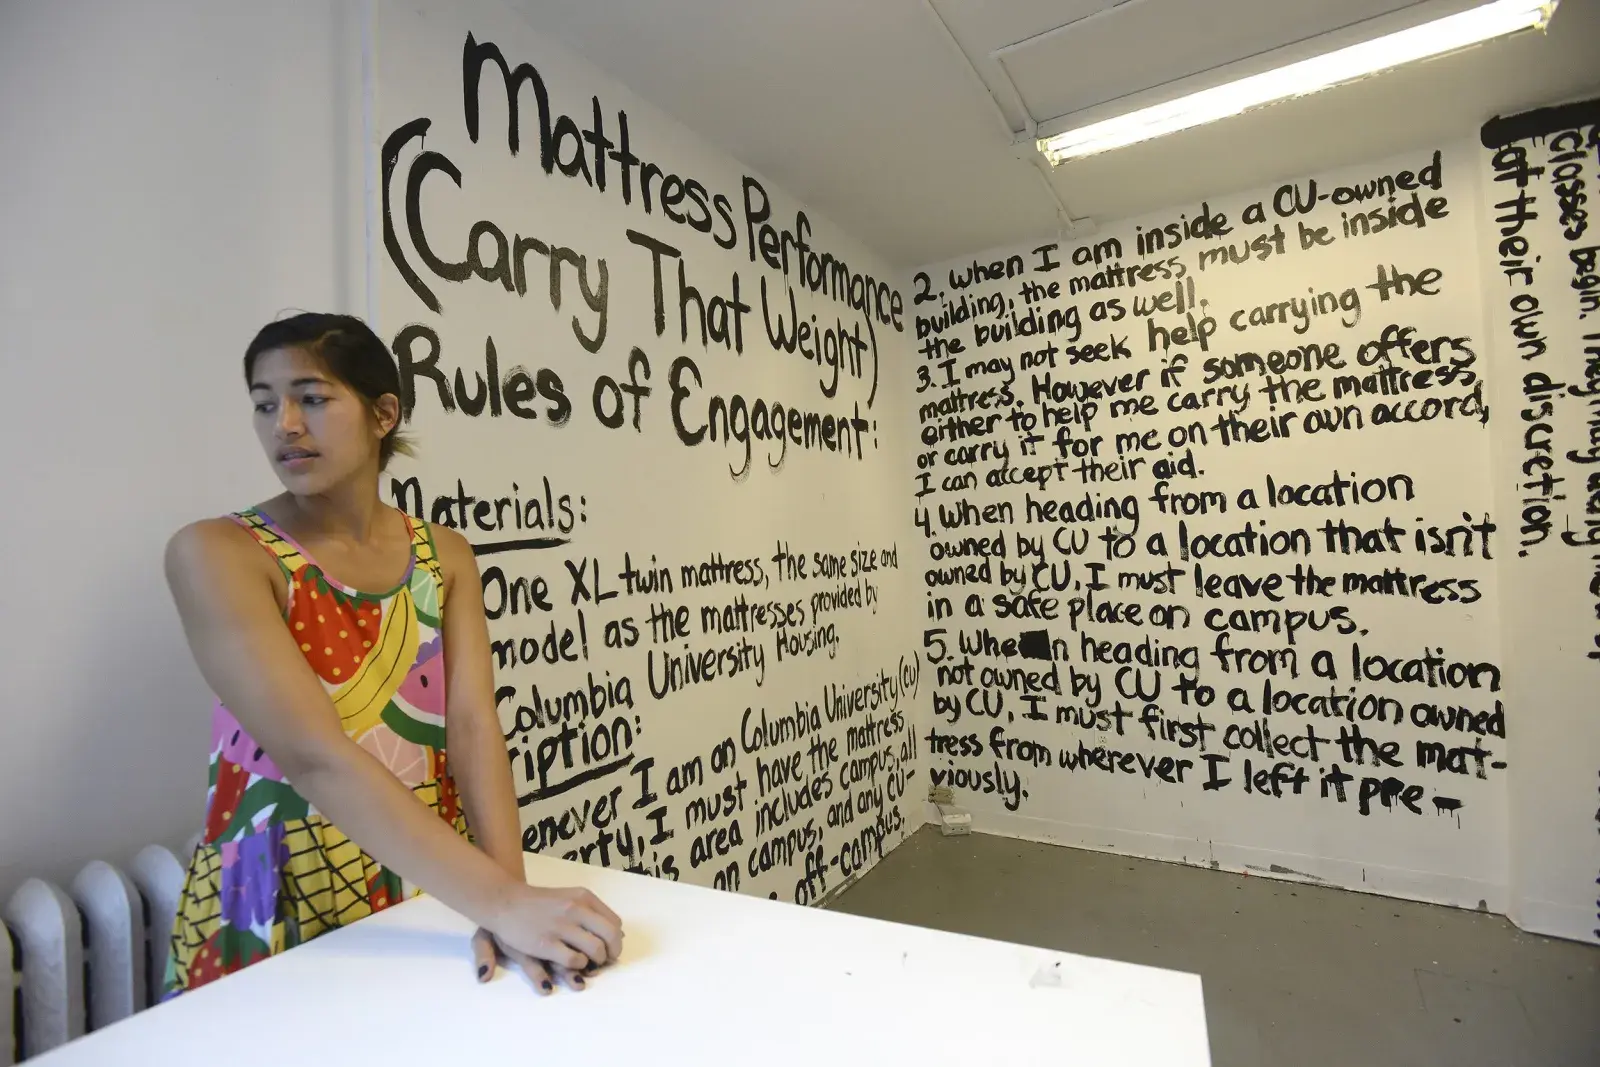 Mattress Performance
(Carry That Weight)
Rules of Engagement:
Materials:
One XL twin mattress, the same size and
model as the mattresses provided by
Columbia University Housing.
ription:
enever I am on Columbia University (CU)
erty, I must have the mattress
is area includes campus, all
on campus, and any CU-
off-campus.
2. When I am inside a CU-owned
building, the mattress must be inside
the building as well.
3. I may not seek help carrying the
mattress. However if someone offers
either to help me carry the mattress,
or carry it for me on their own accord,
I can accept their aid.
4. When heading from a location
owned by CU to a location that isn't
owned by CU, I must leave the mattress
in a safe place on campus.
5. When heading from a location
not owned by CU to a location owned
by CU, I must first collect the mat-
tress from wherever I left it pre-
viously.
classes begin. They may
at their own discretion.